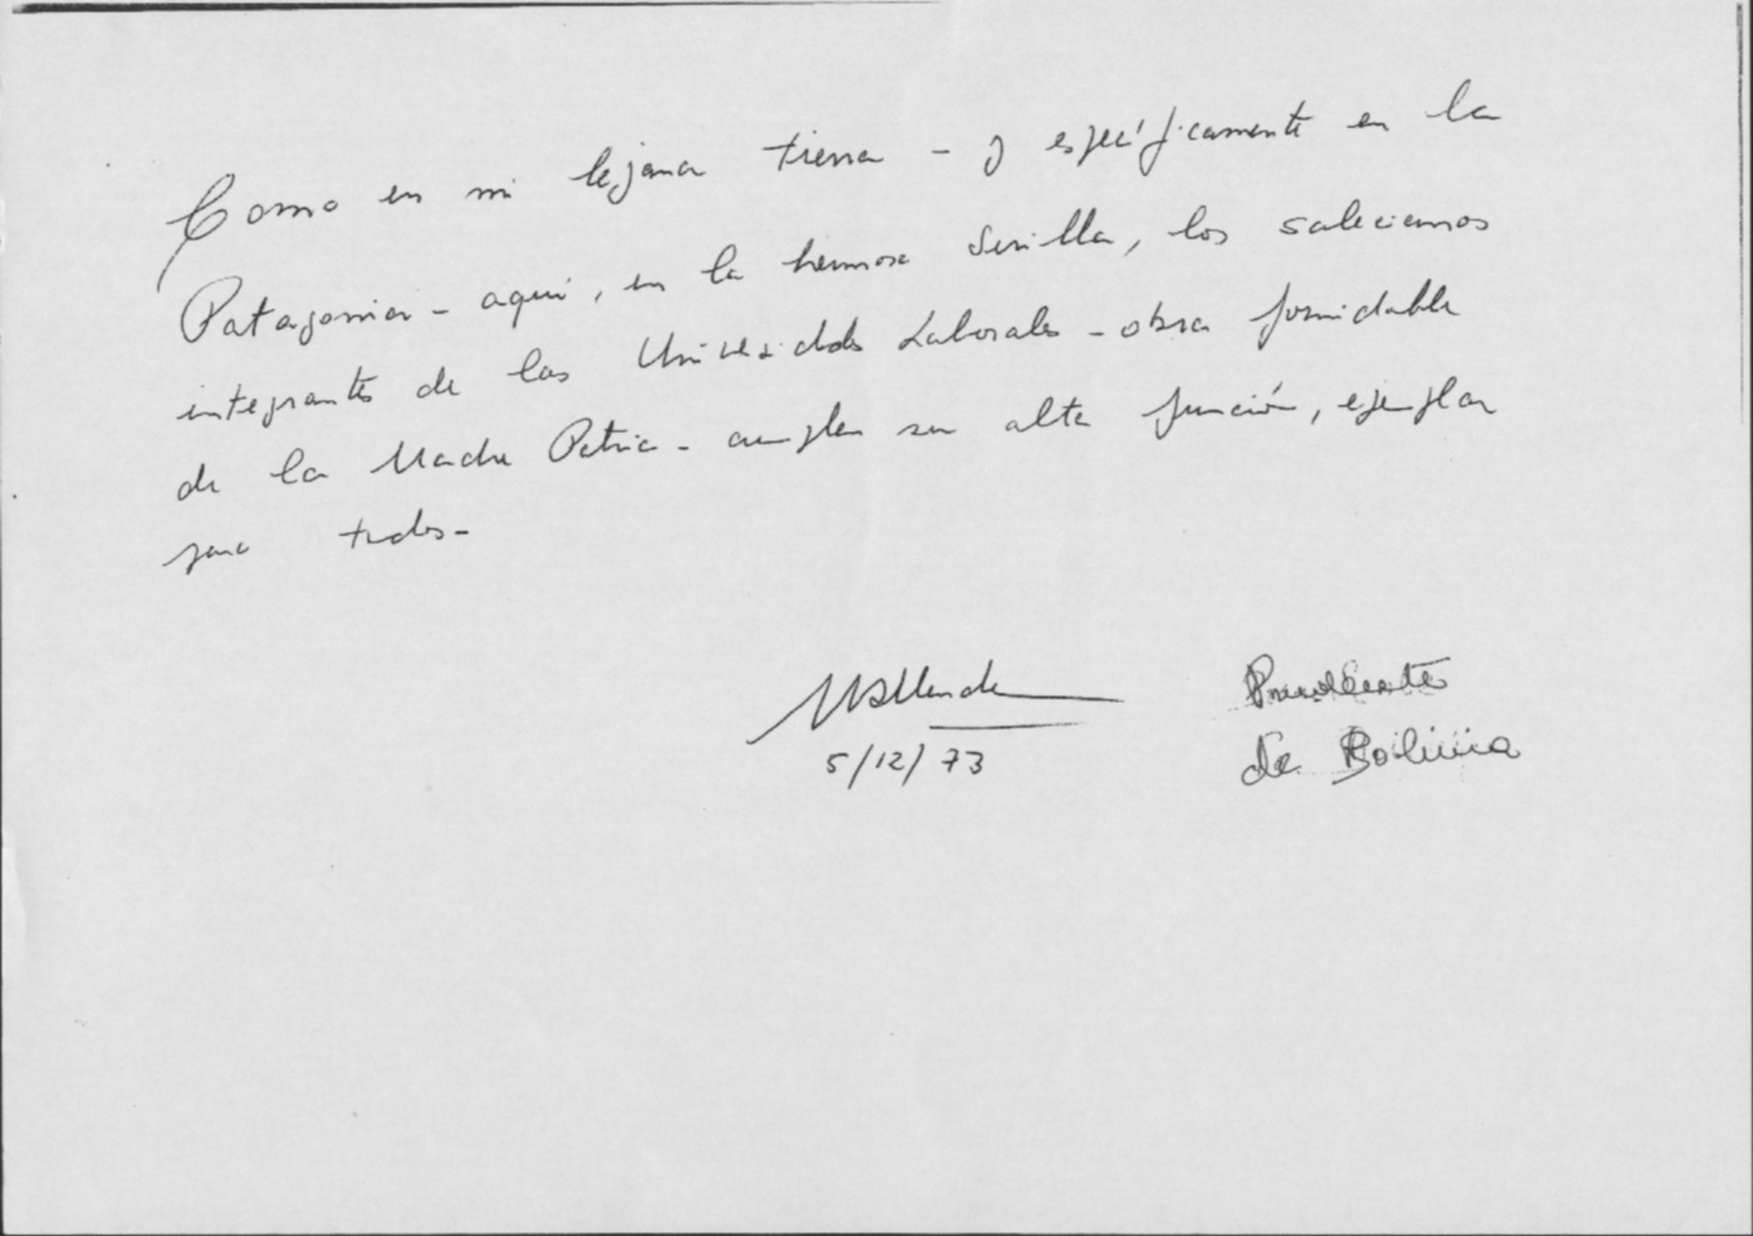 Como en mi lejana tierra - y específicamente en la
Patagonia - aquí, en la hermosa Sevilla, los salecianos
integrantes de las Universidades Laborales - obra formidable
de la Madre Patria - cumplen su alta función, ejemplar
para todos -
5/12/73
Presidente
de Bolivia